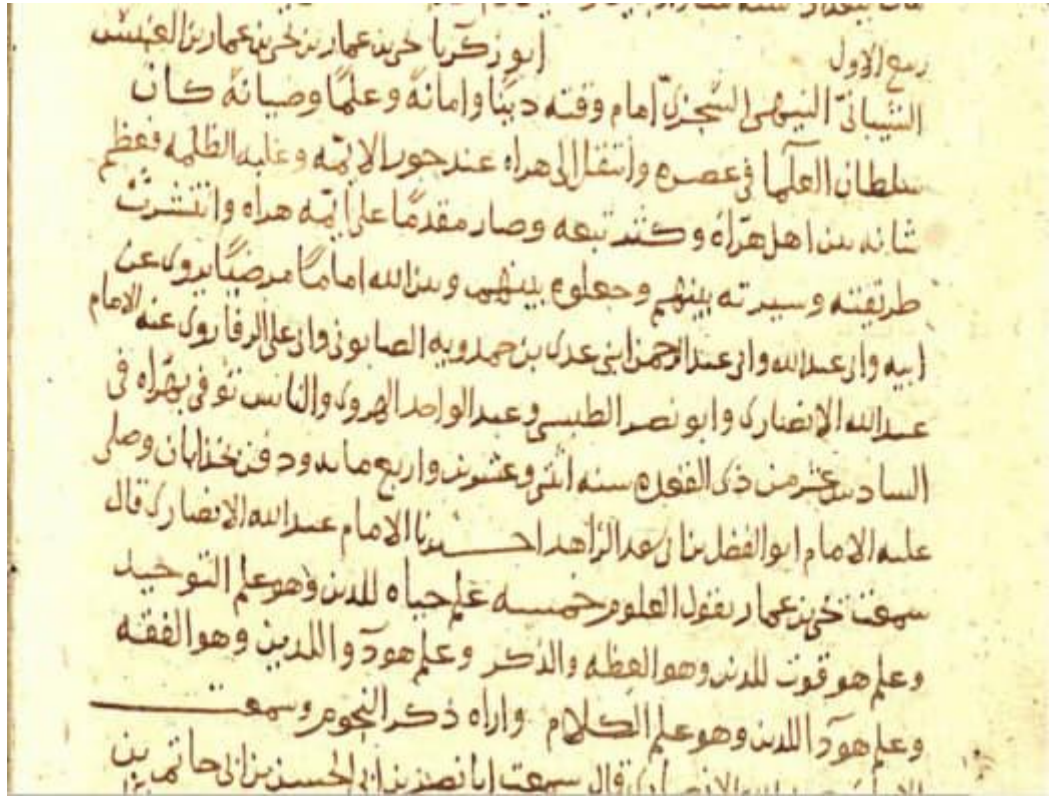 ربيع الاول ابو زكريا يحيى بن عمار بن يحيى بن عمار بن العنبس
الشيباني النيهي السجزي امام وقته دينا وامانة وعلما وصيانة كان
سلطان العلما في عصره وانتقل الى هراه عند جور الائمه وغلبه الظلمه فعظم
شانه بين اهل هراة وكثر تبعه وصار مقدما على ائمه هراه وانتشرت
طريقته وسيرته بينهم وجعلوه بينهم وبين الله اماما مرضيا يروى عن
ابيه وابى عبد الله وابى عبد الرحمن ابنى عدى بن حمدويه الصابونى وابى على الرفا روى عنه الامام
عبد الله الانصارى وابو نصر الطبسى وعبد الواحد الهروى والناس توفى بهراه فى
السادس عشر من ذى القعده سنه اثنى وعشرين واربع مايه ودفن وصلى
عليه الامام ابو الفضل بن ابى سعد الزاهد اخبرنا الامام عبد الله الانصارى قال
سمعت يحيى بن عمار يقول العلوم خمسه علم حياه للدين وهو علم التوحيد
وعلم هو قوت للدين وهو العظه والذكر وعلم هو دوا للدين وهو الفقه
وعلم هو دا للدين وهو علم الكلام واراه ذكر النجوم وسمعت
الانصارى قال سمعت ابا نصر بن ابى الحسن بن ابى حاتم بن